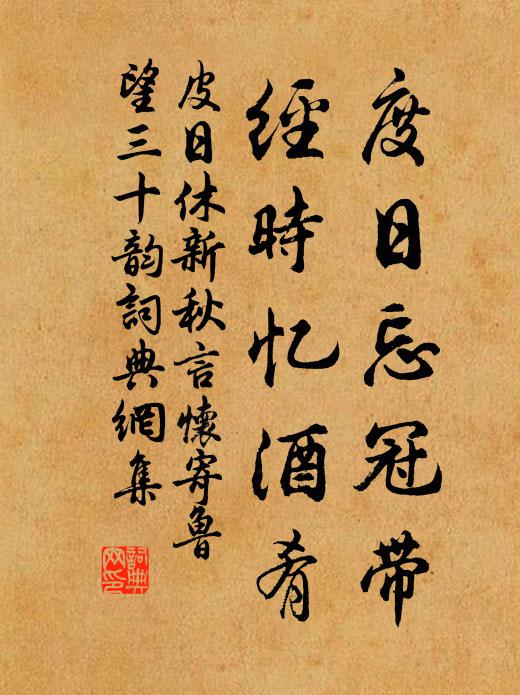 度日忘冠带
經時忆酒肴
皮日休新秋言懷寄魯
望三十韵詞典網集
詞典
网印